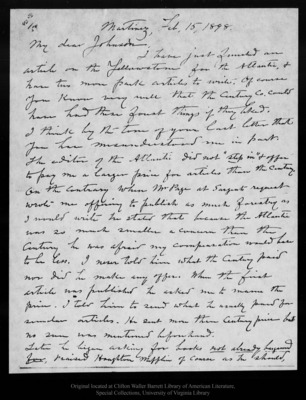 Martinez, Feb, 15, 1898.
My dear Johnson,
I have just finished an
article on the Yellowstone for the Atlantic, &
have two more park articles to write. Of course
you know very well that the Century Co. could
have had these forest things if they liked.
I think by the tone of your last letter that
you have misunderstood me in part.
The editor of the Atlantic did not "step in" & offer
to pay me a larger price for articles than the Century
On the contrary when Mr Page at Sargents request
wrote me offering to publish as much forestry as
I would write he stated that because the Atlantic
was so much smaller a concern than the
Century he was afraid my compensation would have
to be less. I never told him what the Century paid
nor did he make any offer. When the first
article was published he asked me to name the
price. I told him to send what he usually paid for
similar articles. He sent more than Century price but
no sum was mentioned beforehand.
Later he began asking for books not already bargained
for, Houghton Mifflin of course as he should,
Original located at Clifton Waller Barrett Library of American Literature,
Special Collections, University of Virginia Library